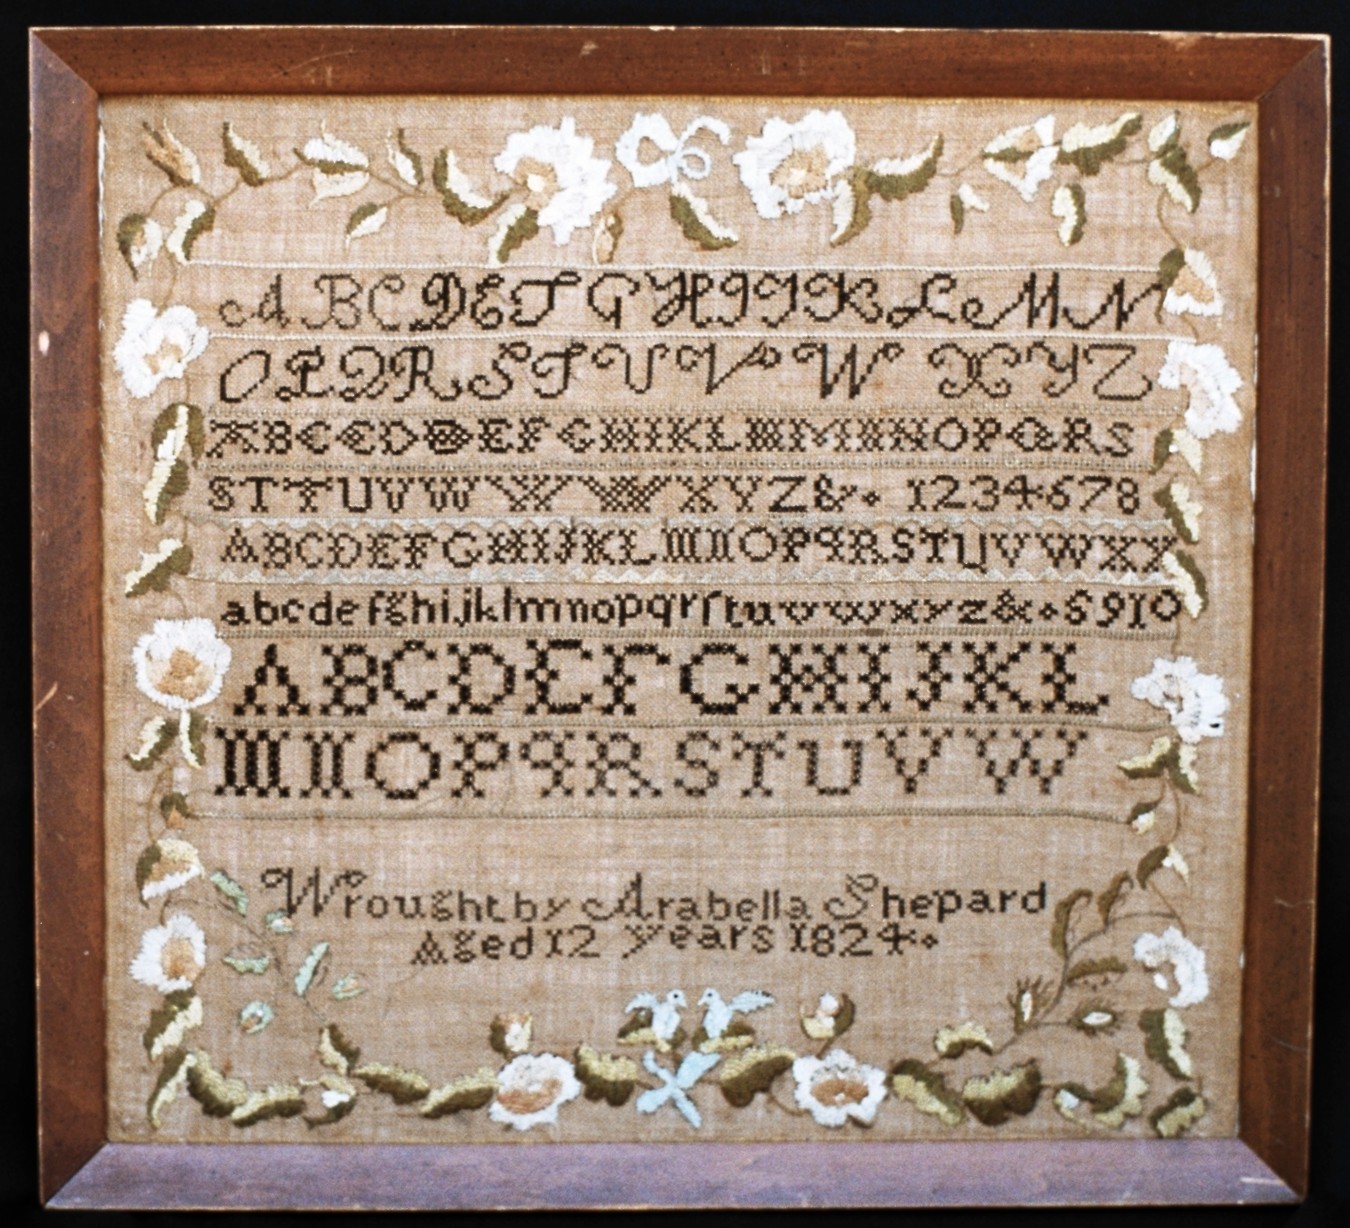 A B C D E F G H I J K L M N
O P Q R S T U V W X Y Z
A B C C D D E F G H I K L M M N N O P Q R S
S T T U V W W W X Y Z & 1 2 3 4 6 7 8
A B C D E F G H I J K L M N O P Q R S T U V W X X
a b c d e f g h i j k l m n o p q r ſ t u v w x y z & 5 9 10
A B C D E F G H I J K L
M N O P Q R S T U V W
Wrought by Arabella Shepard
Aged 12 years 1824.